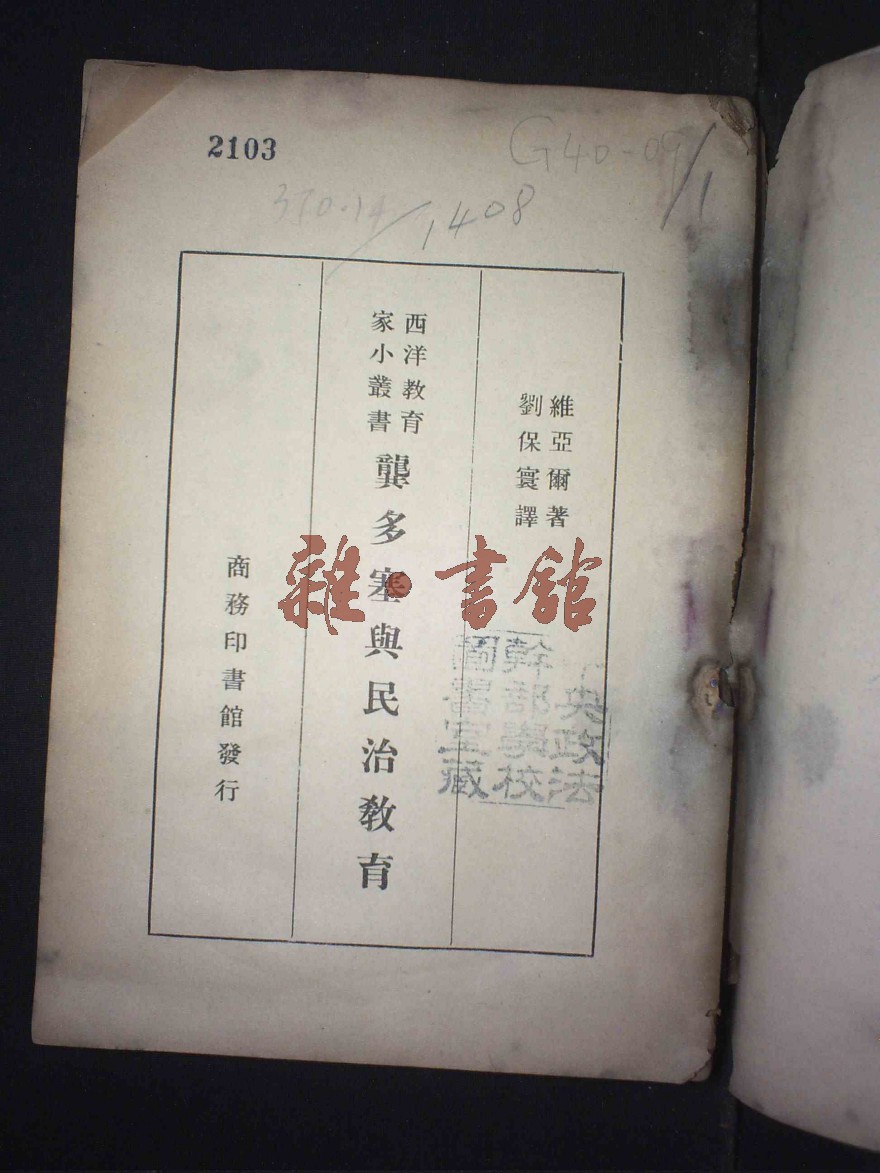 2103
G40-09/1
370.14/1408
維亞爾著
劉保寰譯
西洋教育
家小叢書
龔多塞與民治教育
商務印書館發行
雜·書館
中央政法
幹部學校
圖書室藏